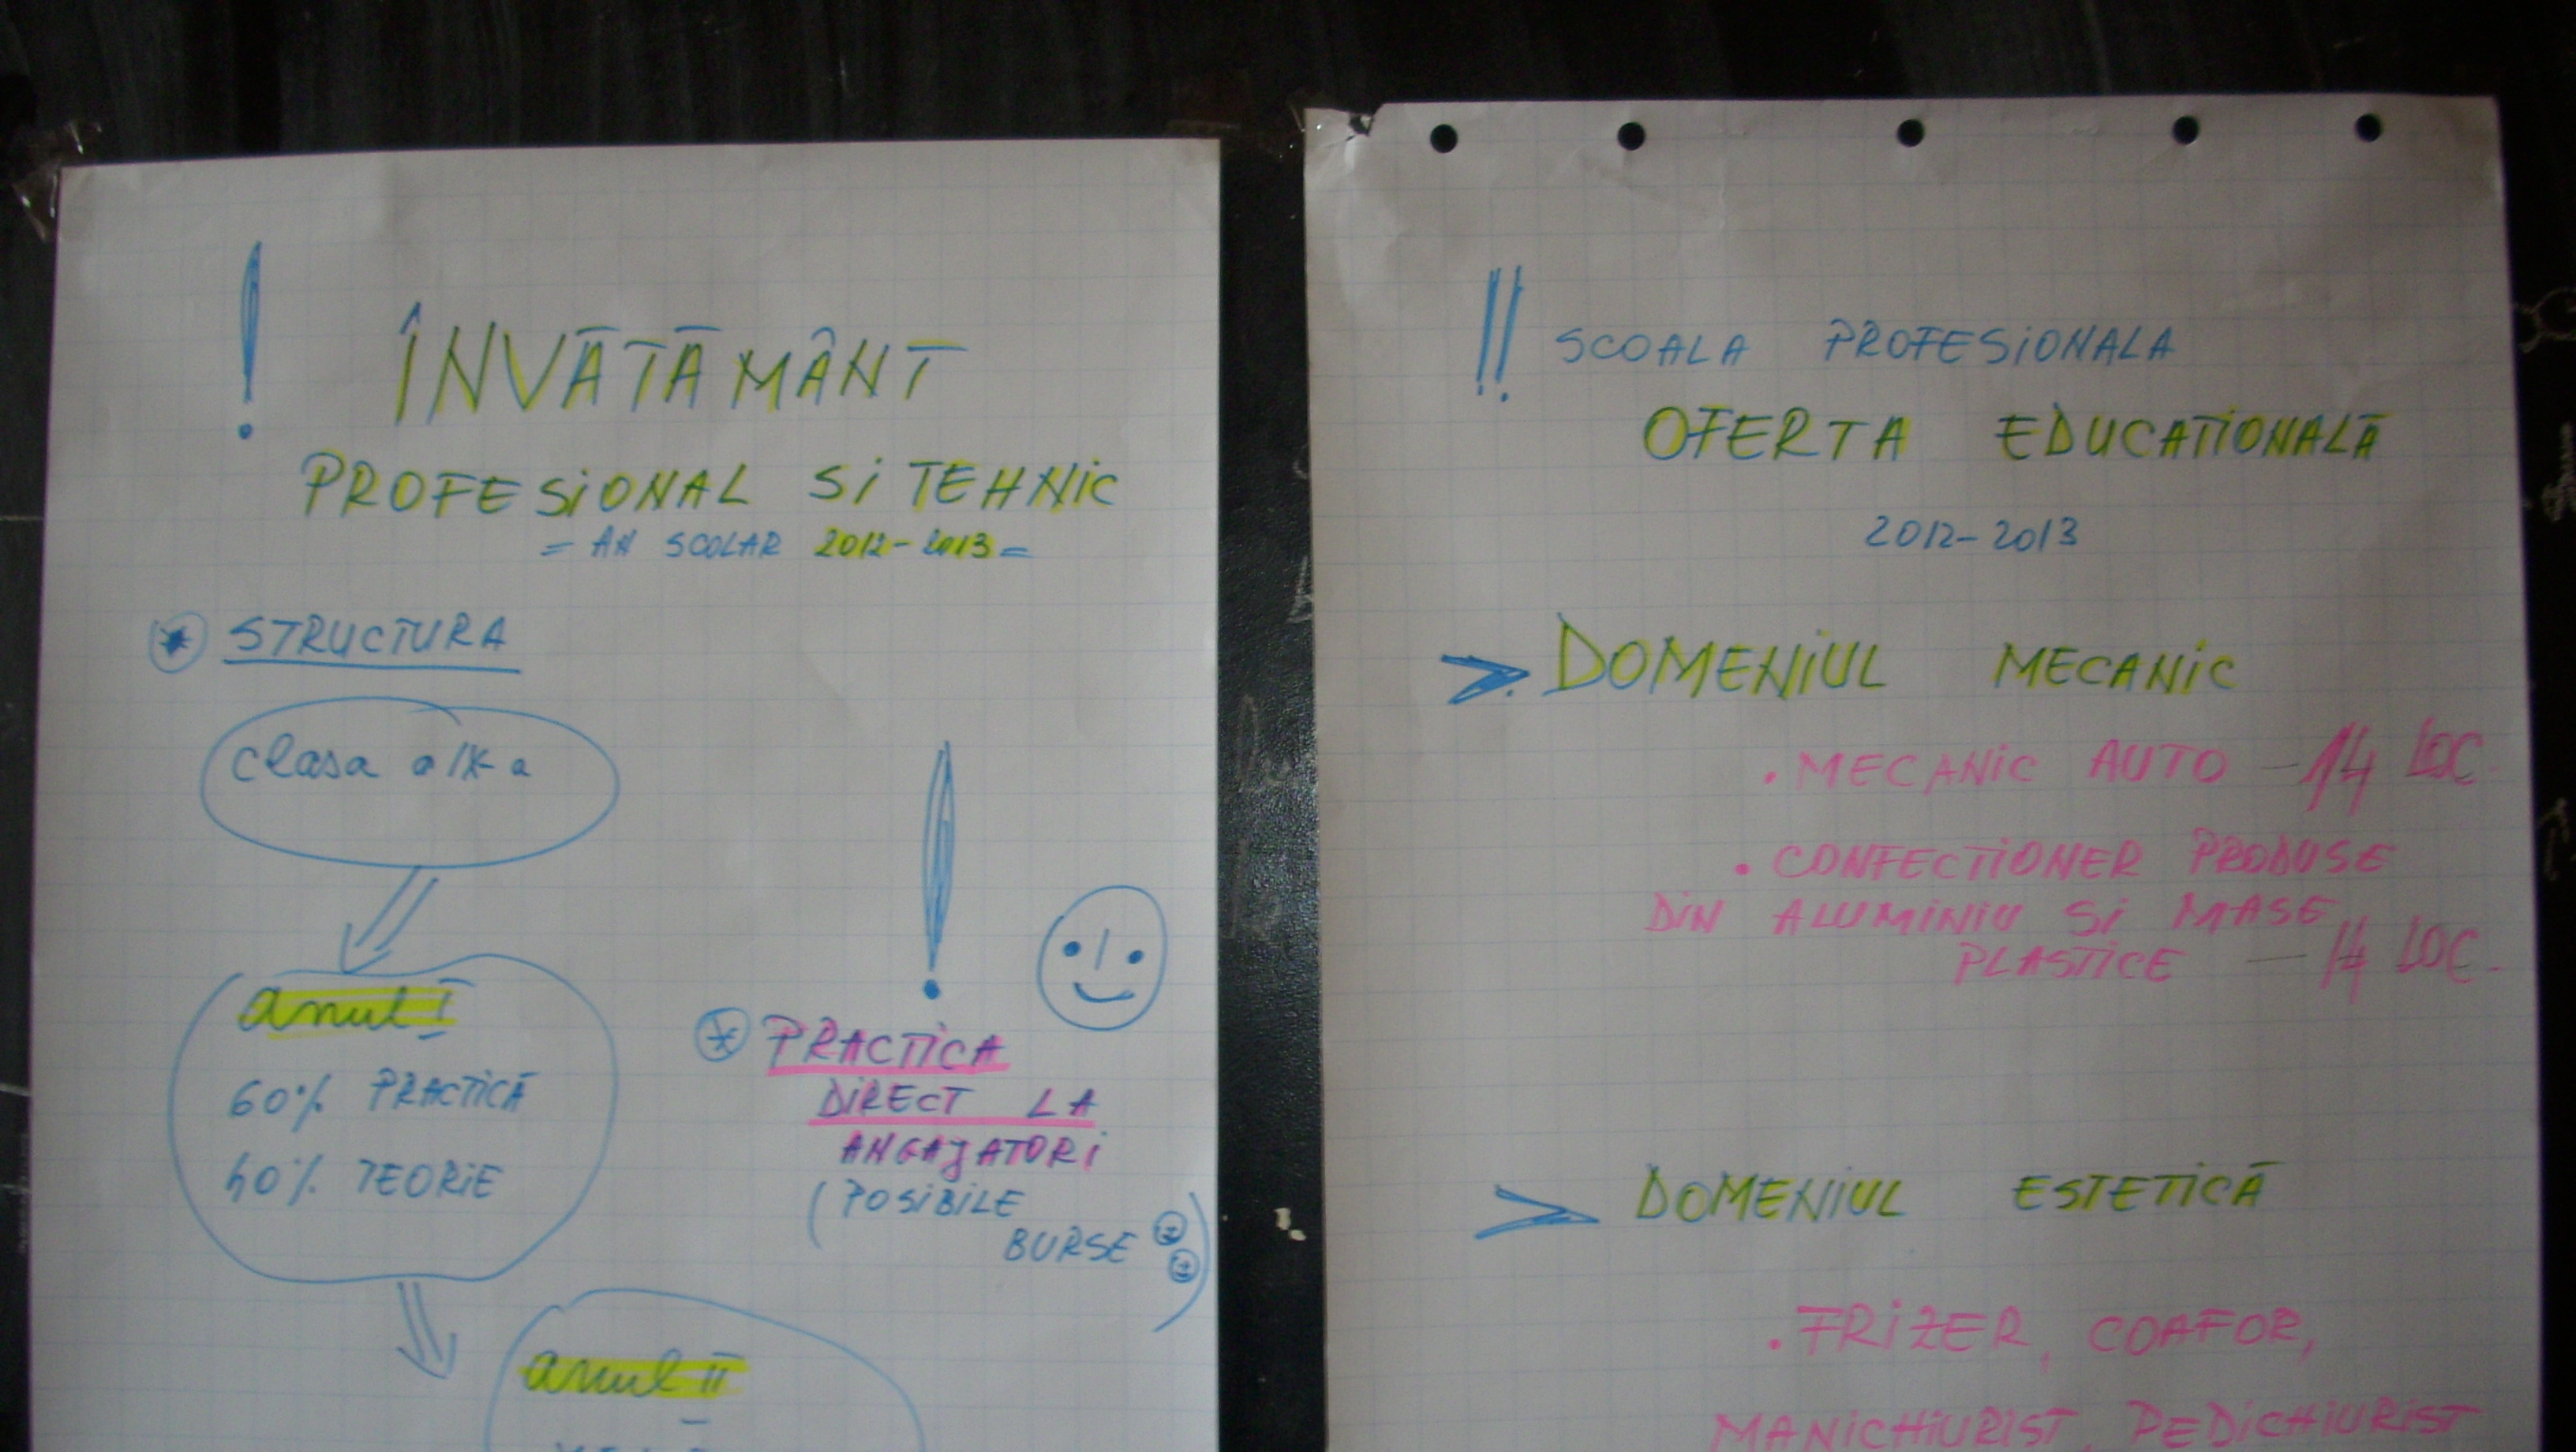 !
ÎNVĂTĂMÂNT
PROFESIONAL SI TEHNIC
= AN SCOLAR 2012-2013 =
* STRUCTURA
clasa a IX-a
anul I
60% PRACTICĂ
40% TEORIE
anul II
!
* PRACTICA
DIRECT LA
ANGAJATORI
(POSIBILE
BURSE )
!! SCOALA PROFESIONALA
OFERTA EDUCATIONALĂ
2012-2013
> DOMENIUL MECANIC
. MECANIC AUTO - 14 LOC.
. CONFECTIONER PRODUSE
DIN ALUMINIU SI MASE
PLASTICE - 14 LOC.
> DOMENIUL ESTETICĂ
. FRIZER, COAFOR,
MANICHIURIST, PEDICHIURIST